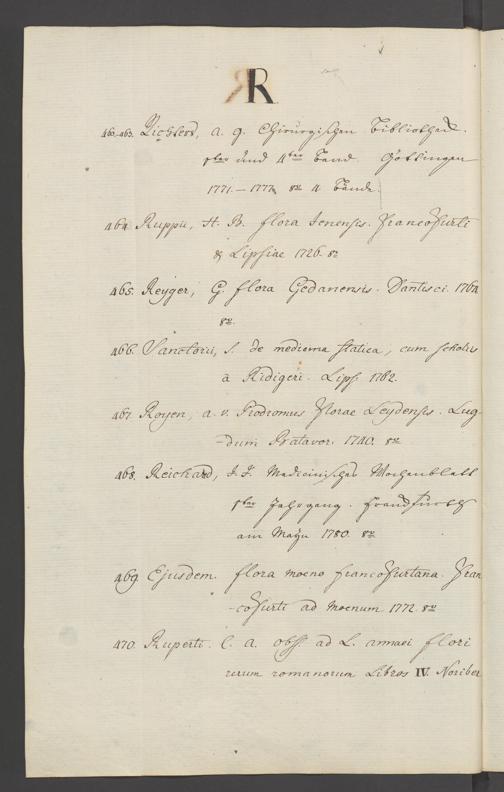 R
460-463. Richters, A. G. Chirurgischen Bibliotheck.
1ster und 4ter Band. Göttingen
1771.-1777. 8º 4 Bände.
464. Ruppii, H. B. flora Jenensis. Francofurti
& Lipsiae 1726. 8º
465. Reyger, G. flora Gedanensis. Dantisci. 1764
8º.
466. Sanctorii, S. de medicina statica, cum scholiis
a Ridigeri. Lips. 1762.
467. Royen, a. v. Prodromus Florae Leydensis. Lug-
-dum Bratavor. 1740. 8º
468. Reichard, J. J. Medicinisches Wochenblatt
1ster Jahrgang. Franckfurth
am Mayn 1780. 8º
469. Ejusdem. flora moeno francofurtana. Fran
-cofurti ad moenum 1772. 8º
470. Ruperti. C. A. obss. ad L. annaei flori
rerum romanorum Libros IV. Noriber